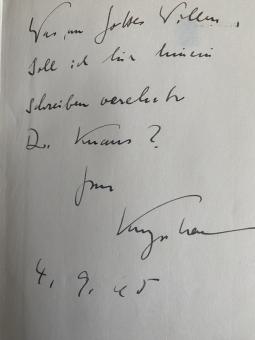 Was, um Gottes Willen,
soll ich hier hinein
schreiben verehrter
Dr. Knaus?
Ihr
4. 9. 45